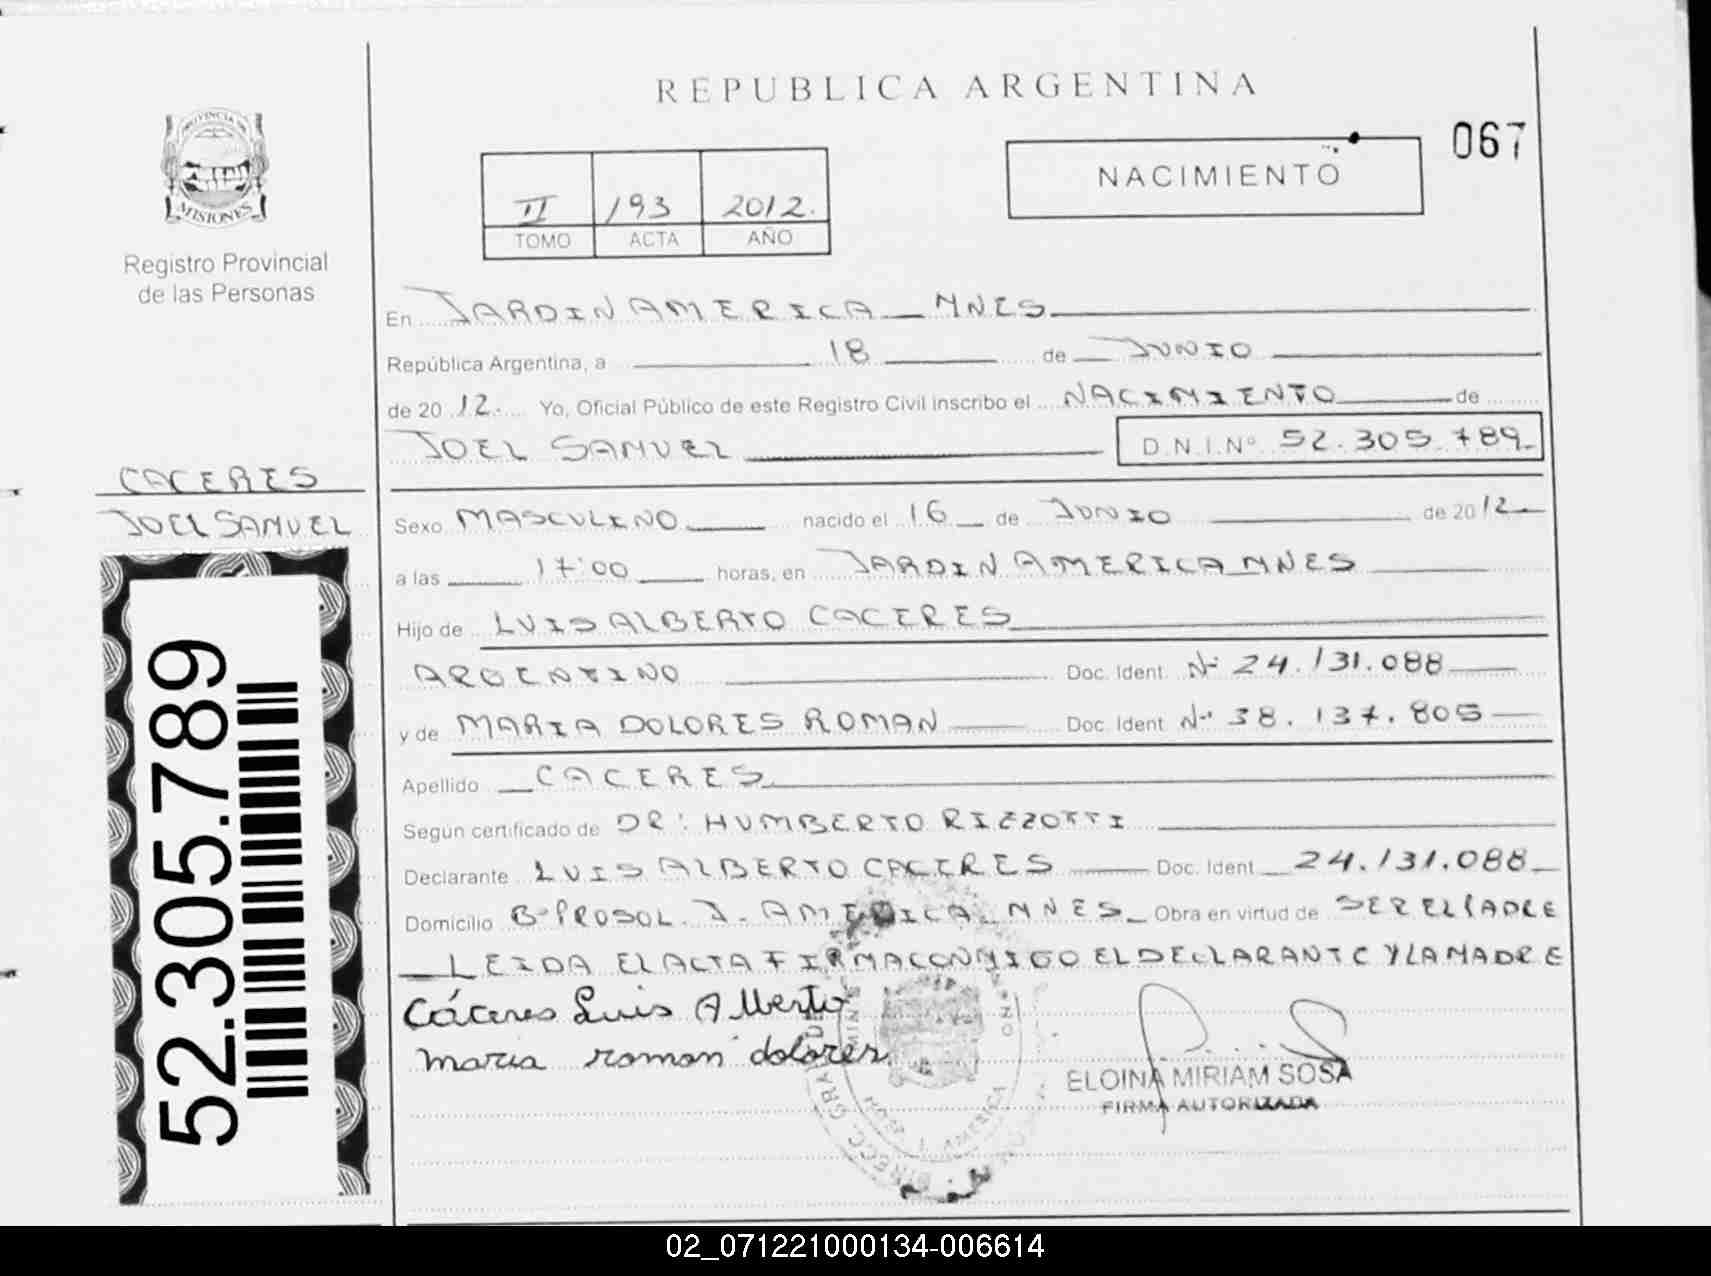 REPUBLICA ARGENTINA
067
NACIMIENTO
PROVINCIA DE
MISIONES
II 193 2012.
TOMO ACTA AÑO
Registro Provincial
de las Personas
En JARDIN AMERICA _ MNES.
República Argentina, a 18 de JUNIO
de 2012. Yo, Oficial Público de este Registro Civil inscribo el NACIMIENTO de
JOEL SAMUEL D.N.I.Nº 52.305.789
CACERES
JOEL SAMUEL
Sexo MASCULINO nacido el 16 de JUNIO de 2012
a las 17:00 horas, en JARDIN AMERICA MNES
Hijo de LUIS ALBERTO CACERES
ARGENTINO Doc. Ident. Nº 24.131.088
y de MARIA DOLORES ROMAN Doc. Ident. Nº 38.137.805
Apellido CACERES
Según certificado de DR: HUMBERTO RIZZOTTI
Declarante LUIS ALBERTO CACERES Doc. Ident. 24.131.088
Domicilio Bº PROSOL. J. AMERICA MNES Obra en virtud de SER EL PADRE
LEIDA EL ACTA FIRMA CONMIGO EL DECLARANTE Y LA MADRE
Cáceres Luis Alberto
maria roman dolores
ELOINA MIRIAM SOSA
FIRMA AUTORIZADA
52.305.789
02_071221000134-006614